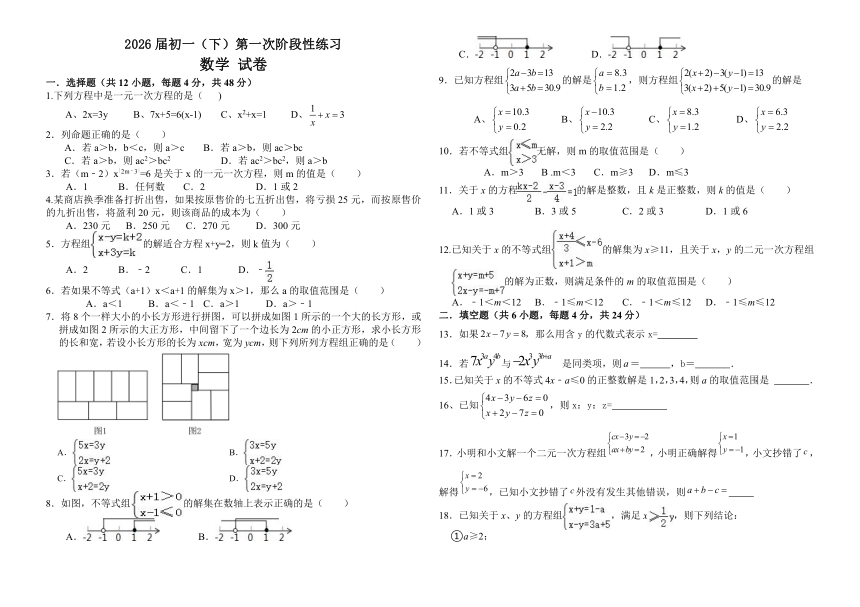 2026届初一（下）第一次阶段性练习
数学 试卷
一．选择题（共12小题，每题4分，共48分）
1.下列方程中是一元一次方程的是（ ）
A、2x=3y B、7x+5=6(x-1) C、x²+x=1 D、1/x+x=3
2．列命题正确的是（ ）
A．若a＞b，b＜c，则a＞c B．若a＞b，则ac＞bc
C．若a＞b，则ac²＞bc² D．若ac²＞bc²，则a＞b
3．若（m﹣2）x^|2m﹣3|=6是关于x的一元一次方程，则m的值是（ ）
A．1 B．任何数 C．2 D．1或2
4.某商店换季准备打折出售，如果按原售价的七五折出售，将亏损25元，而按原售价
的九折出售，将盈利20元，则该商品的成本为（ ）
A．230元 B．250元 C．270元 D．300元
5．方程组{x-y=k+2 x+3y=k的解适合方程x+y=2，则k值为（ ）
A．2 B．﹣2 C．1 D．﹣1/2
6．若如果不等式（a+1）x＜a+1的解集为x＞1，那么a的取值范围是（ ）
A．a＜1 B．a＜﹣1 C．a＞1 D．a＞﹣1
7．将8个一样大小的小长方形进行拼图，可以拼成如图1所示的一个大的长方形，或
拼成如图2所示的大正方形，中间留下了一个边长为2cm的小正方形，求小长方形
的长和宽，若设小长方形的长为xcm，宽为ycm，则下列所列方程组正确的是（ ）
图1 图2
A．{5x=3y 2x=y+2 B．{3x=5y x+2=2y
C．{5x=3y x+2=2y D．{3x=5y 2x=y+2
8．如图，不等式组{x+1>0 x-1≤0的解集在数轴上表示正确的是（ ）
A． -2 -1 0 1 2 B． -2 -1 0 1 2
C． -2 -1 0 1 2 D． -2 -1 0 1 2
9．已知方程组{2a-3b=13 3a+5b=30.9的解是{a=8.3 b=1.2，则方程组{2(x+2)-3(y-1)=13 3(x+2)+5(y-1)=30.9的解是
A、{x=10.3 y=0.2 B、{x=10.3 y=2.2 C、{x=8.3 y=1.2 D、{x=6.3 y=2.2
10．若不等式组{x≤m x>3无解，则m的取值范围是（ ）
A．m＞3 B.m＜3 C．m≥3 D．m≤3
11．关于x的方程(kx-2)/2-(x-3)/4=1的解是整数，且k是正整数，则k的值是（ ）
A．1或3 B．3或5 C．2或3 D．1或6
12.已知关于x的不等式组{(x+4)/3≤x-6 x+1>m的解集为x≥11，且关于x，y的二元一次方程组
{x+y=m+5 2x-y=-m+7的解为正数，则满足条件的m的取值范围是（ ）
A．﹣1＜m＜12 B．﹣1≤m＜12 C．﹣1＜m≤12 D．﹣1≤m≤12
二．填空题（共6小题，每题4分，共24分）
13．如果2x-7y=8，那么用含y的代数式表示x=
14．若7x^3a y^4b与-2x³y^3b+a 是同类项，则a= ，b= ．
15．已知关于x的不等式4x﹣a≤0的正整数解是1，2，3，4，则a的取值范围是 ．
16、已知{4x-3y-6z=0 x+2y-7z=0，则x：y：z=
17．小明和小文解一个二元一次方程组{cx-3y=-2 ax+by=2，小明正确解得{x=1 y=-1，小文抄错了c，
解得{x=2 y=-6，已知小文抄错了c外没有发生其他错误，则a+b-c=
18．已知关于x、y的方程组{x+y=1-a x-y=3a+5，满足x≥1/2y，则下列结论：
①a≥2；